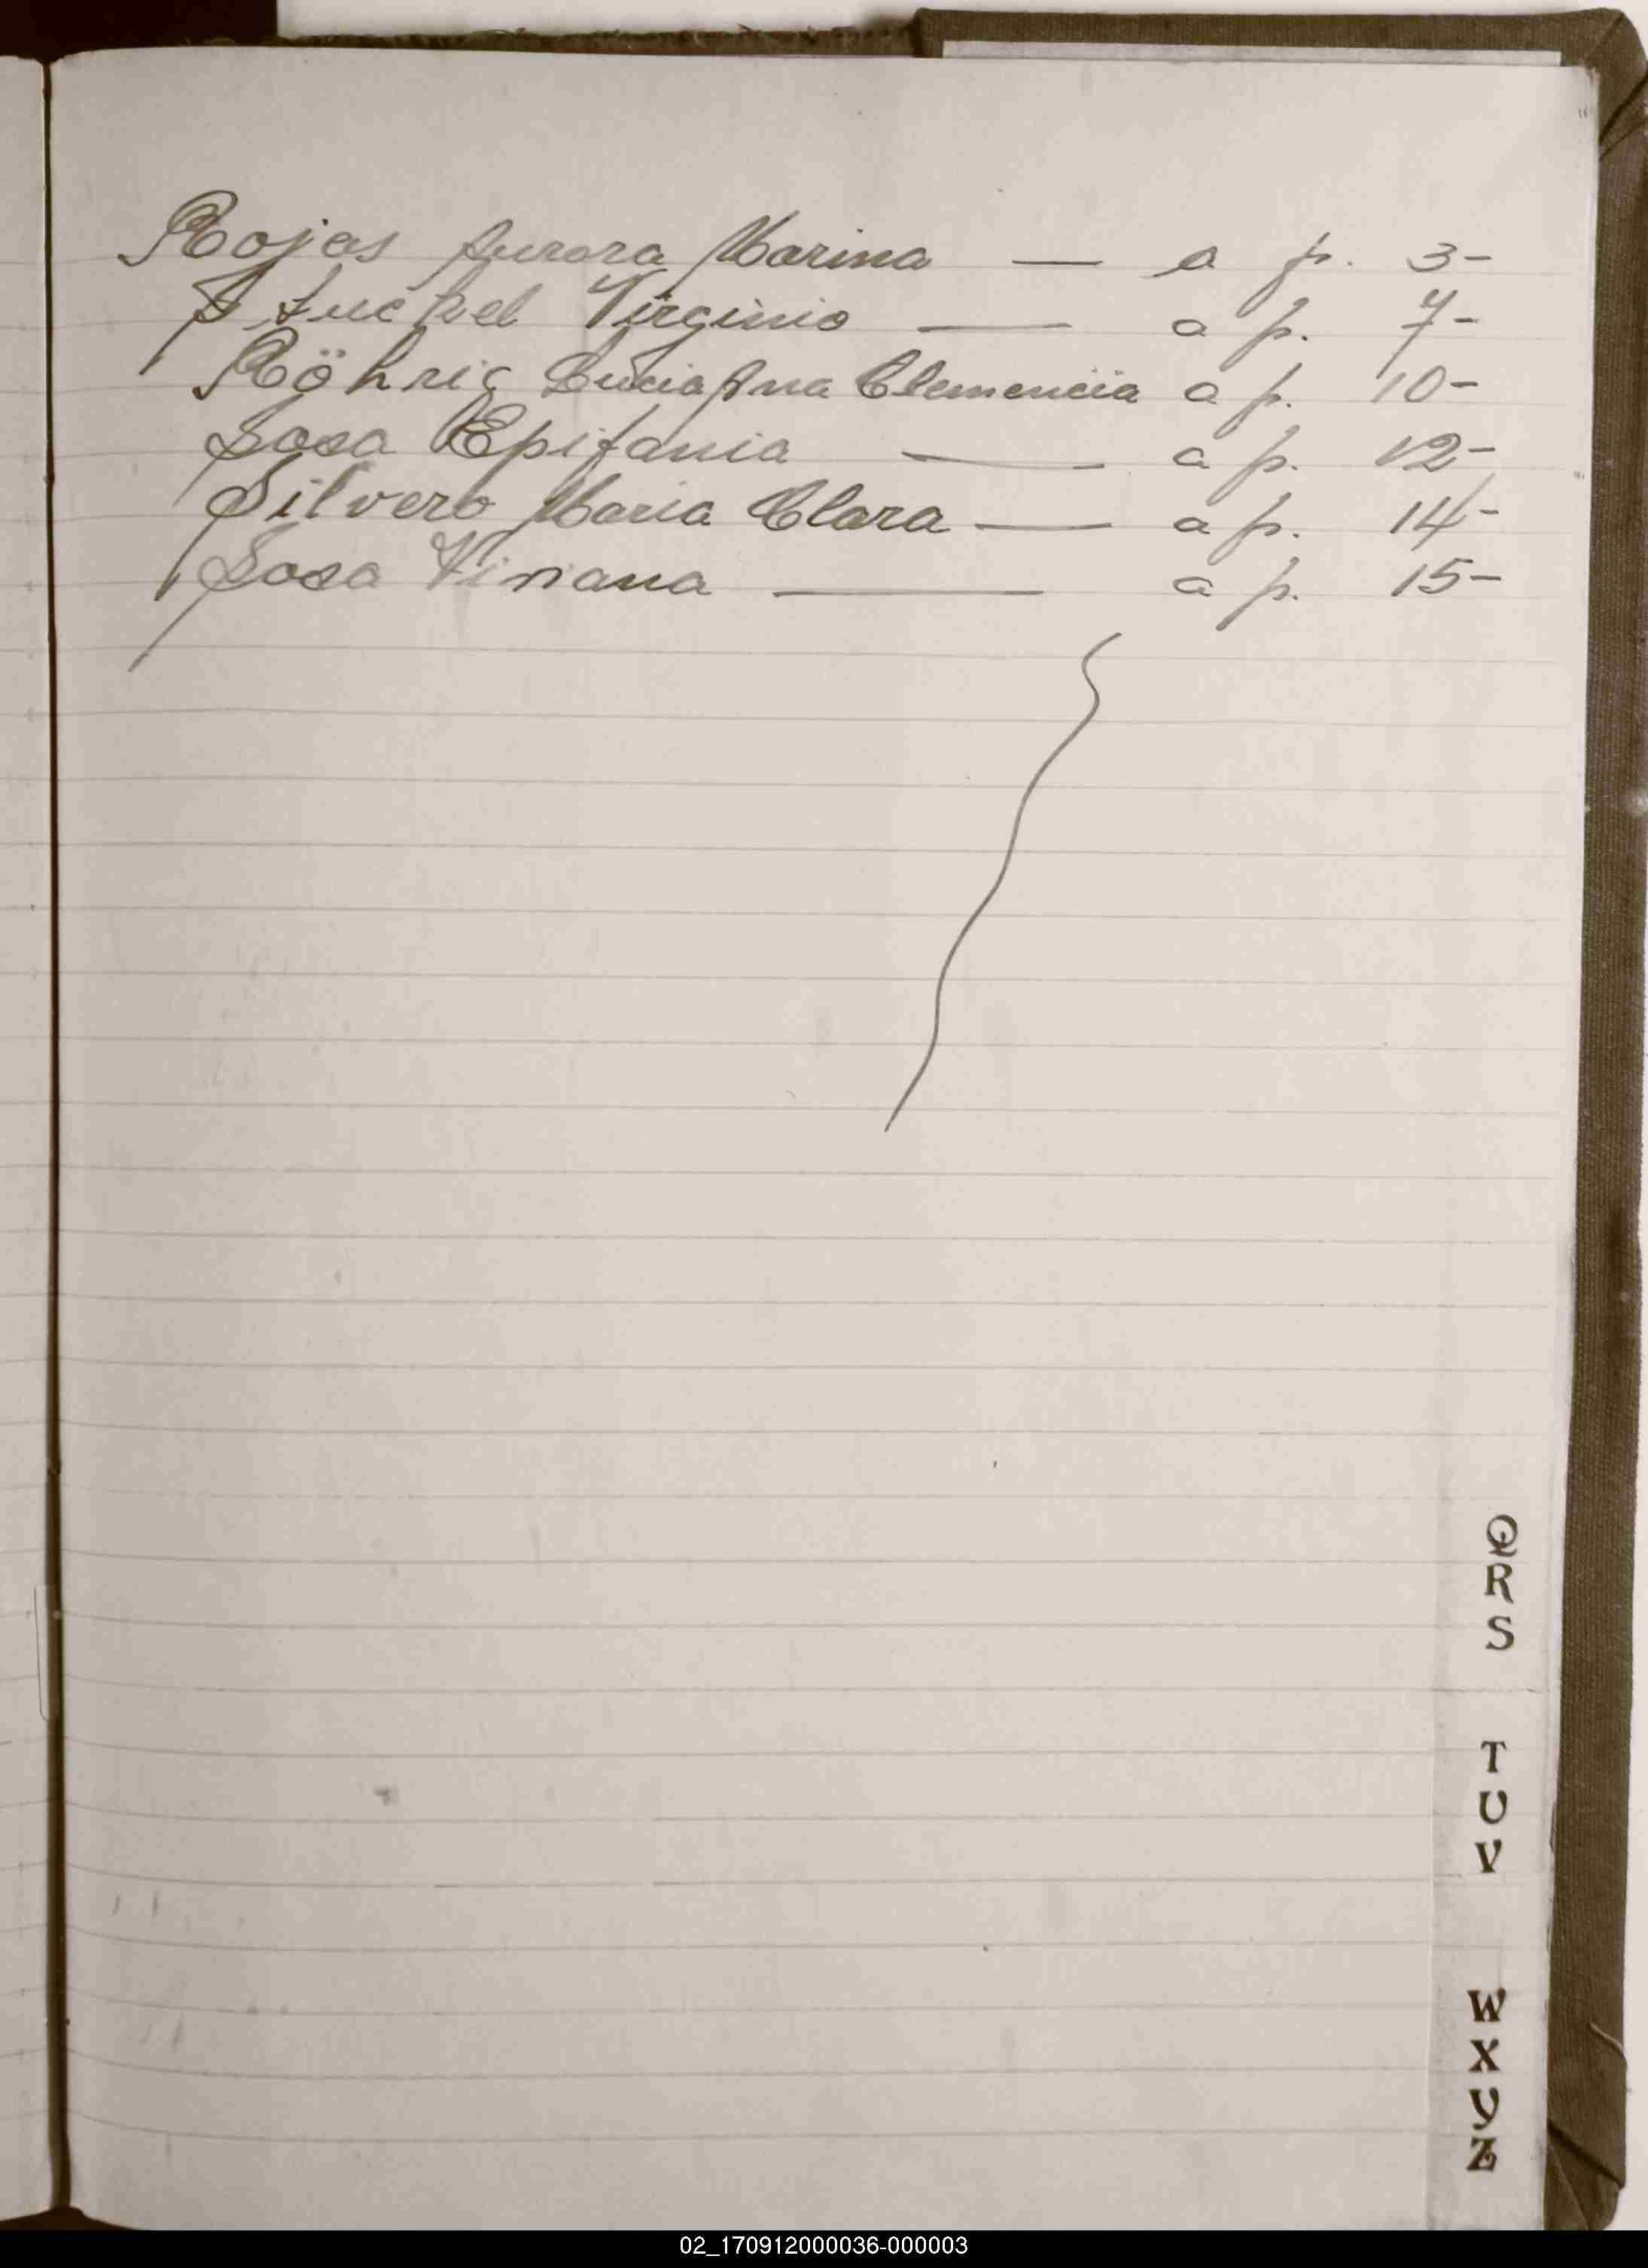 Rojas Aurora Marina — a p. 3-
Stuckel Virginio — a p. 7-
Röhrig Lucia Ana Clemencia a p. 10-
Sosa Epifania — a p. 12-
Silvero Maria Clara — a p. 14-
Sosa Viviana — a p. 15-
Q
R
S
T
U
V
W
X
Y
Z
02_170912000036-000003